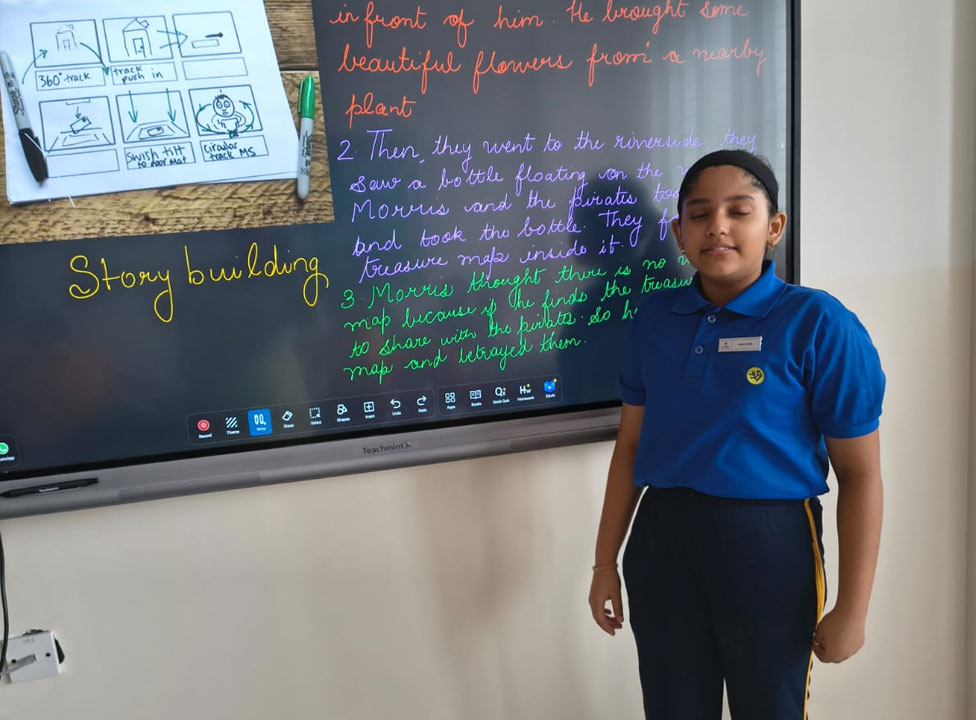 360° track
track
push in
swish tilt
to door mat
Circular
track MS
in front of him. He brought some
beautiful flowers from a nearby
plant
Story building
2. Then, they went to the riverside, they
saw a bottle floating on the
Morris and the pirates
and took the bottle. They
treasure map inside it.
3. Morris thought there is no
map because if he finds the
to share with the pirates. So
map and betrayed them.
Record
Theme
Write
Erase
Select
Shapes
Insert
Undo
Redo
Apps
Books
Quick Quiz
Homework
EduAI
Teachmint X